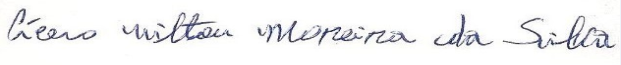 Cícero Milton Moreira da Silva